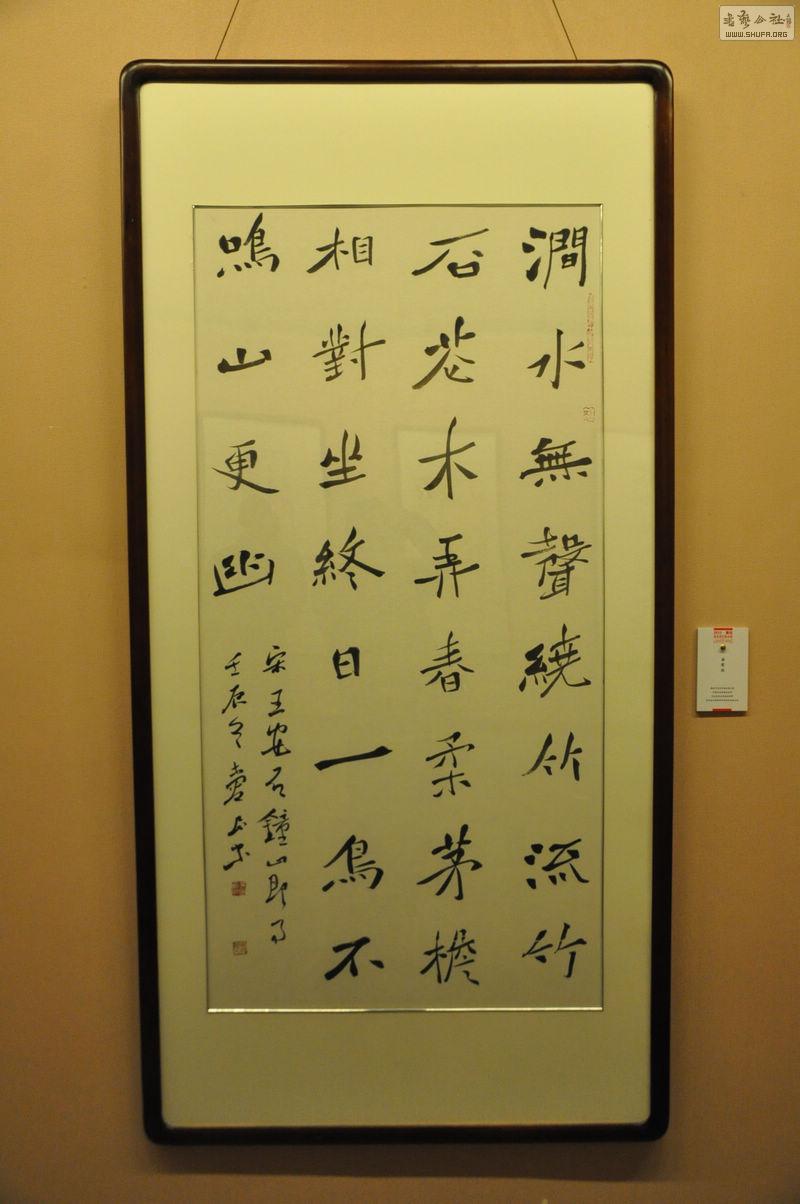 澗水無聲繞竹流竹
石花木弄春柔茅檐
相對坐終日一鳥不
鳴山更幽
宋王安石鐘山即事
壬辰冬
書藝公社
WWW.SHUFA.ORG